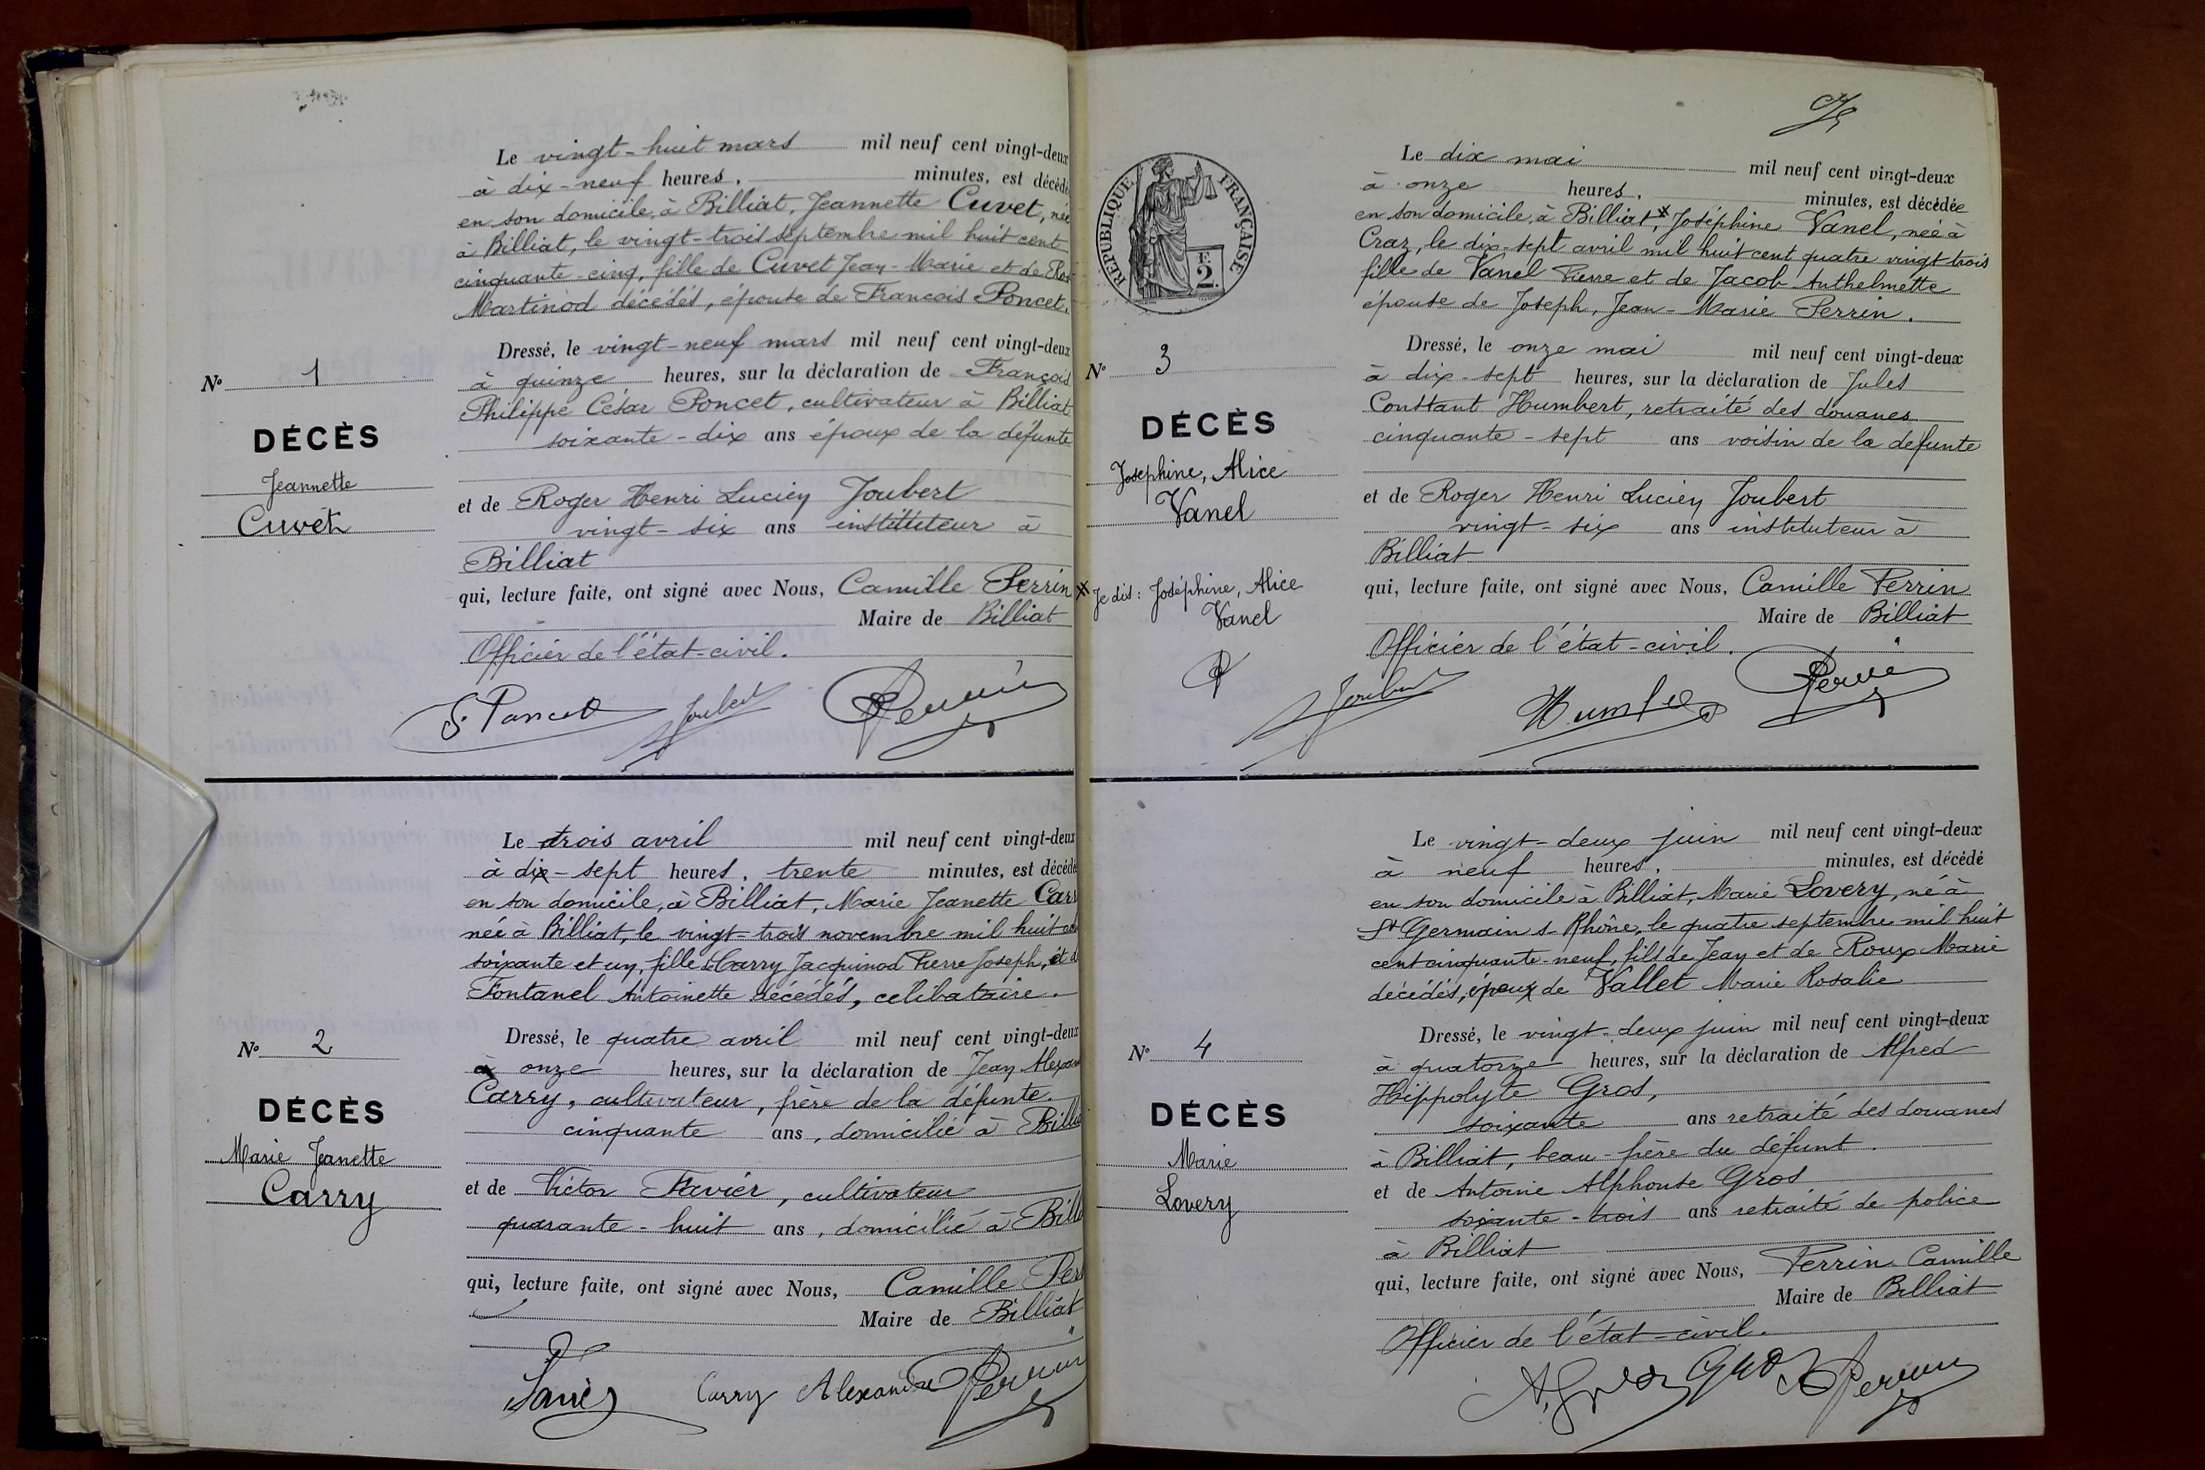 Le vingt-huit mars mil neuf cent vingt-deux
à dix-neuf heures, minutes, est décédé
en son domicile, à Billiat, Jeannette Cuvet, née
à Billiat, le vingt-trois septembre mil huit cent
cinquante-cinq, fille de Cuvet Jean-Marie et de
Martinod décédés, épouse de François Poncet.
Dressé, le vingt-neuf mars mil neuf cent vingt-deux
à quinze heures, sur la déclaration de François
Philippe César Poncet, cultivateur à Billiat
soixante-dix ans époux de la défunte
et de Roger Henri Lucien Joubert
vingt-six ans instituteur à
Billiat
qui, lecture faite, ont signé avec Nous, Camille Perrin
Maire de Billiat
Officier de l'état-civil.
Joubert
Perrin
No 1
DÉCÈS
Jeannette
Cuvet
Le trois avril mil neuf cent vingt-deux
à dix-sept heures, trente minutes, est décédé
en son domicile, à Billiat, Marie Jeanette Carr
née à Billiat, le vingt-trois novembre mil huit cent
soixante et un, fille de Carry Jacquinod Pierre Joseph, et d
Fontanel Antoinette décédés, celibataire.
Dressé, le quatre avril mil neuf cent vingt-deux
à onze heures, sur la déclaration de Jean Alexan
Carry, cultivateur, frère de la défunte.
cinquante ans, domicilié à Billi
et de Victor Favier, cultivateur
quarante-huit ans, domicilié à Bill
qui, lecture faite, ont signé avec Nous, Camille Per
Maire de Billiat
Carry Alexandre Perrin
No 2
DÉCÈS
Marie Jeanette
Carry
RÉPUBLIQUE FRANÇAISE
F.
2.
Le dix mai mil neuf cent vingt-deux
à onze heures, minutes, est décédée
en son domicile, à Billiat, x Joséphine Vanel, née à
Craz, le dix-sept avril mil huit cent quatre vingt trois
fille de Vanel Pierre et de Jacob Anthelmette
épouse de Joseph, Jean-Marie Perrin.
Dressé, le onze mai mil neuf cent vingt-deux
à dix-sept heures, sur la déclaration de Jules
Constant Humbert, retraité des douanes
cinquante-sept ans voisin de la defunte
et de Roger Henri Lucien Joubert
vingt-six ans instituteur à
Billiat
qui, lecture faite, ont signé avec Nous, Camille Perrin
Maire de Billiat
Officier de l'état-civil.
Joubert
Perrin
No 3
DÉCÈS
Josephine, Alice
Vanel
x Je dis: Joséphine, Alice
Vanel
Le vingt-deux juin mil neuf cent vingt-deux
à neuf heures, minutes, est décédé
en son domicile à Billiat, Marie Lovery, né à
St Germain s Rhône, le quatre septembre mil huit
cent cinquante-neuf, fils de Jean et de Roux Marie
décédés, époux de Vallet Marie Rosalie
Dressé, le vingt-deux juin mil neuf cent vingt-deux
à quatorze heures, sur la déclaration de Alfred
Hippolyte Gros,
soixante ans retraité des douanes
à Billiat, beau-frère du défunt.
et de Antoine Alphonse Gros
soixante-trois ans retraité de police
à Billiat
qui, lecture faite, ont signé avec Nous, Perrin Camille
Maire de Billiat
Officier de l'état-civil.
Gros Perrin
No 4
DÉCÈS
Marie
Lovery